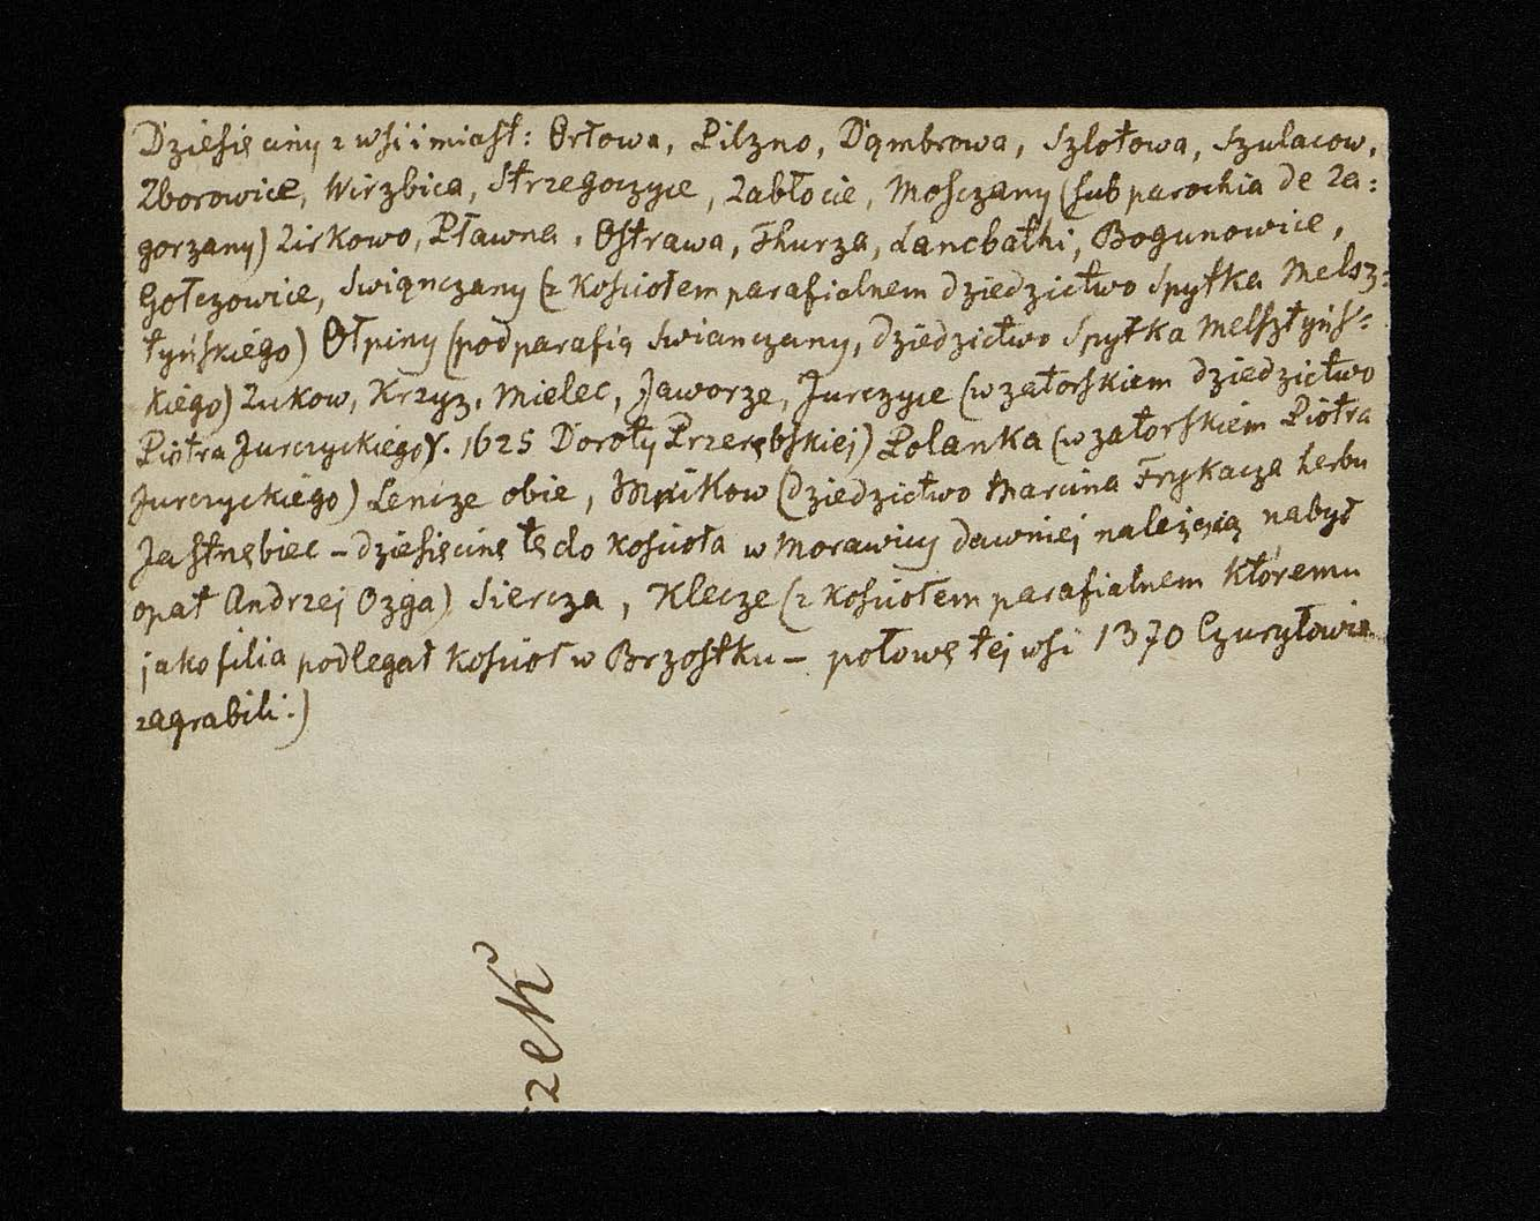 Dziesięciny z wsi i miast: Orłowa, Pilzno, Dąmbrowa, Szlotowa, Szulacow,
Zborowice, Wirzbica, Strzegoczyce, Zabłocie, Mosczany (sub parochia de Za:
gorzany) Zirkowo, Pławna, Ostrawa, Thurza, Lancbatki, Bogunowice,
Gołczowice, Swiąnczany (z kościołem parafialnem dziedzictwo Spytka Melsz:
tyńskiego) Ołpiny (pod parafią Swianczany, dziedzictwo Spytka Melsztyńs:
kiego) Zukow, Krzyz, Mielec, Jaworze, Jurczyce (w zatorskiem dziedzictwo
Piotra Jurczyckiego r. 1625 Doroty Przerębskiej) Polanka (w zatorskiem Piotra
Jurczyckiego) Lencze obie, Mnikow (dziedzictwo Marcina Frykacza herbu
Jastrzębiec – dziesięcinę tę do kościoła w Morawicy dawniej należącą nabył
opat Andrzej Ozga) Siercza, Klecze (z kościołem parafialnem któremu
jako filia podlegał kościoł w Brzostku – połowę tej wsi 1370 Czuryłowie
zagrabili.)
zek